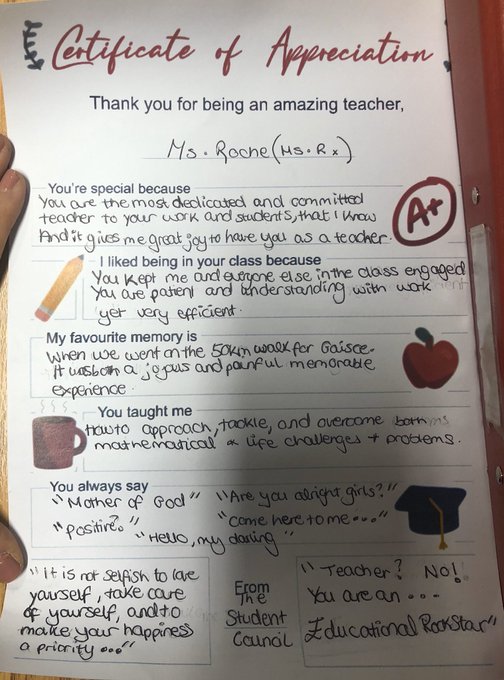 Certificate of Appreciation
Thank you for being an amazing teacher,
Ms. Roche (Ms. Rx)
You're special because
You are the most dedicated and committed
teacher to your work and students, that I know
And it gives me great joy to have you as a teacher.
A+
I liked being in your class because
You kept me and everyone else in the class engaged
You are patient and understanding with work
yet very efficient.
My favourite memory is
When we went on the 50km walk for Gaisce.
It was both a joyous and painful memorable
experience.
You taught me
How to approach, tackle, and overcome both
mathematical & life challenges + problems.
You always say
"Mother of God" "Are you alright girls?"
"Positive?" "Come here to me..."
"Hello, my darling"
"It is not selfish to love
yourself, take care
of yourself, and to
make your happiness
a priority..."
From
The
Student
Council
"Teacher? No!
You are an ...
Educational RockStar"